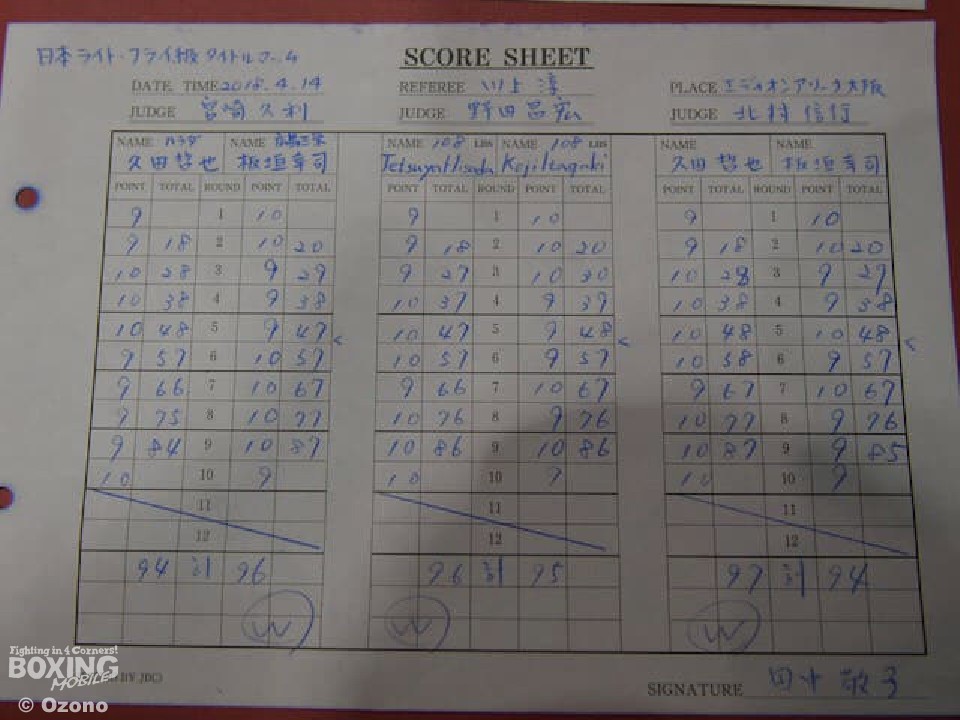 日本ライト・フライ級タイトルマッチ SCORE SHEET
DATE TIME 2018.4.14 REFEREE 川上 淳 PLACE エディオンアリーナ大阪
JUDGE 宮崎久利 JUDGE 野田昌宏 JUDGE 北村信行
NAME ハラダ NAME NAME 108 LBS NAME 108 LBS NAME NAME
久田哲也 板垣幸司 Tetsuya Hisada Koji Itagaki 久田哲也 板垣幸司
POINT TOTAL ROUND POINT TOTAL POINT TOTAL ROUND POINT TOTAL POINT TOTAL ROUND POINT TOTAL
9 1 10 9 1 10 9 1 10
9 18 2 10 20 9 18 2 10 20 9 18 2 10 20
10 28 3 9 29 9 27 3 10 30 10 28 3 9 29
10 38 4 9 38 10 37 4 9 39 10 38 4 9 38
10 48 5 9 47 < 10 47 5 9 48 < 10 48 5 10 48 <
9 57 6 10 57 10 57 6 9 57 10 58 6 9 57
9 66 7 10 67 9 66 7 10 67 9 67 7 10 67
9 75 8 10 77 10 76 8 9 76 10 77 8 9 76
9 84 9 10 87 10 86 9 10 86 10 87 9 9 85
10 10 9 10 10 9 10 10 9
11 11 11
12 12 12
94 計 96 96 計 95 97 計 94
W W W
Fighting in 4 Corners!
BOXING
MOBILE
BY JBC)
SIGNATURE 田中
© Ozono